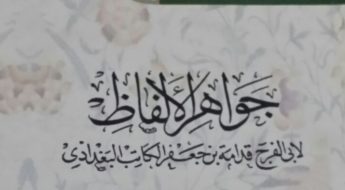 جواهر الألفاظ
لأبي الفرج قدامة بن جعفر الكاتب البغدادي